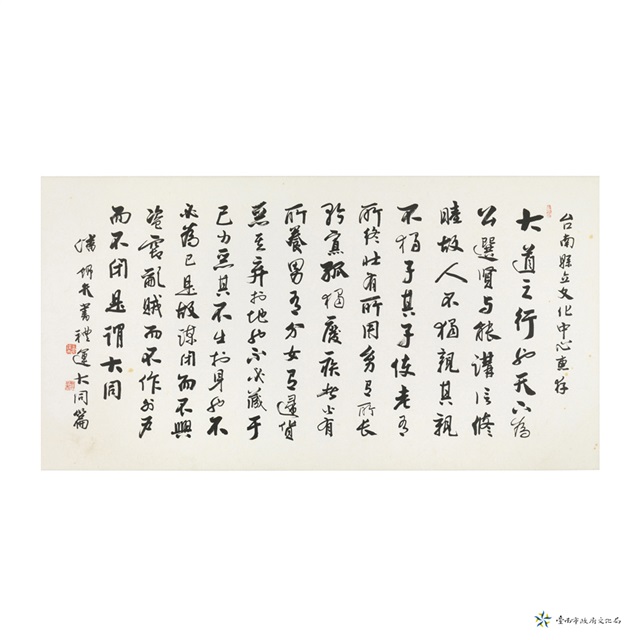 台南縣立文化中心惠存
大道之行也天下為
公選賢与能講信修
睦故人不獨親其親
不獨子其子使老有
所終壯有所用幼有所長
矜寡孤獨廢疾者皆有
所養男有分女有歸貨
惡其弃於地也不必藏于
己力惡其不出於身也不
必為己是故謀閉而不興
盜竊亂賊而不作外戶
而不閉是謂大同
潘 書禮運大同篇
臺南市政府文化局